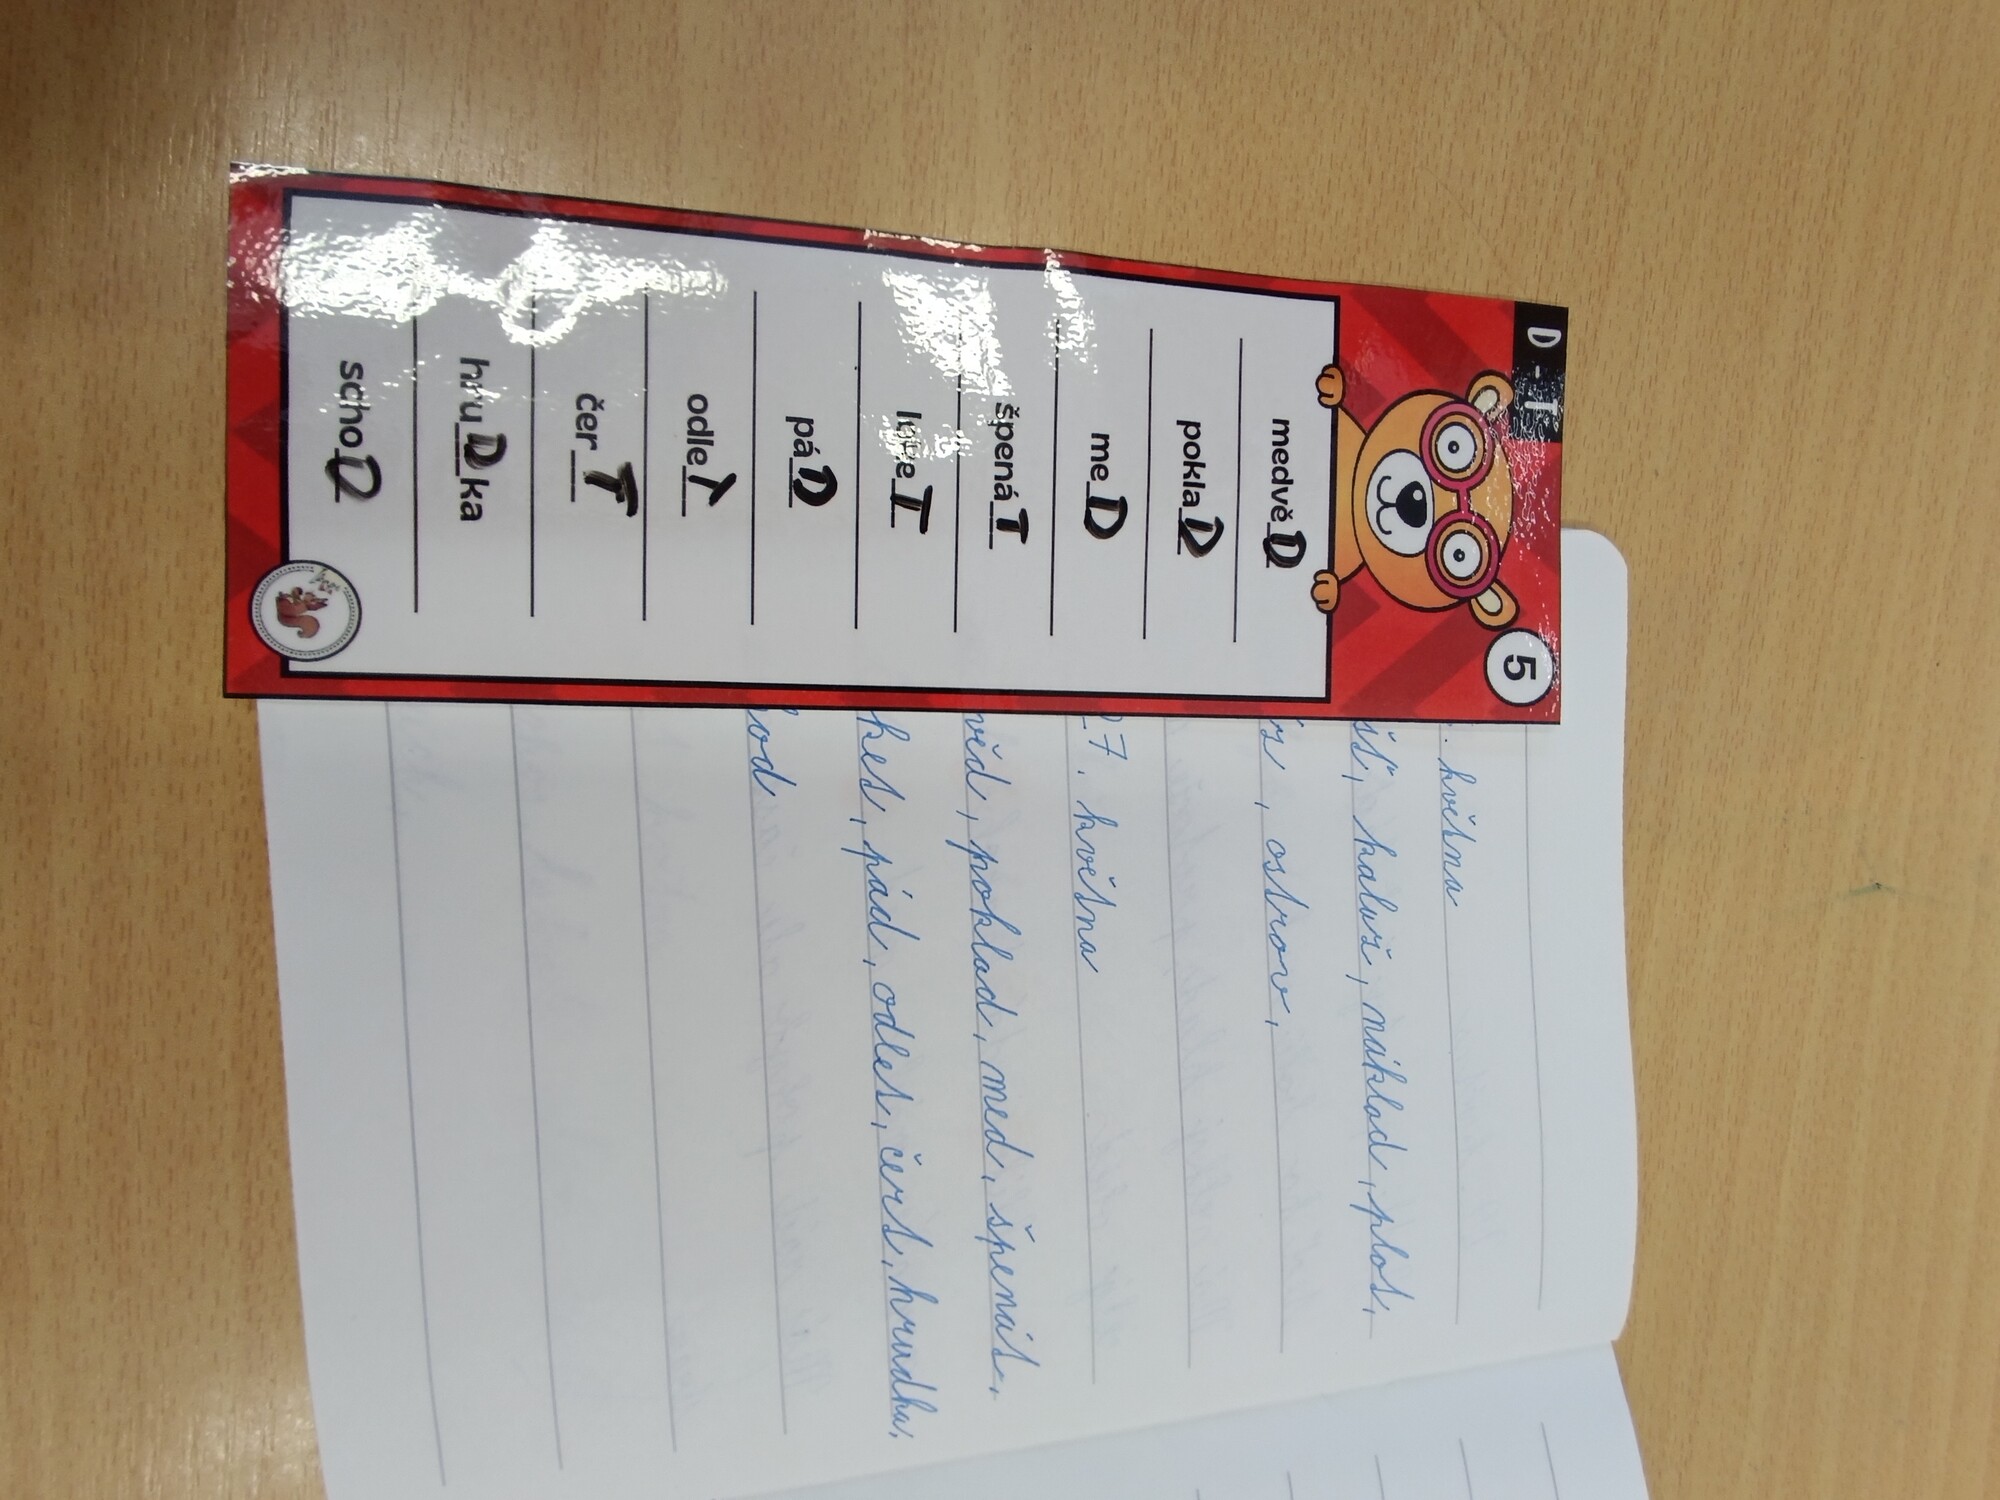 D - T
5
medvěD
poklaD
meD
špenáT
páD
odleT
čerT
hruDka
schoD
května
kaluž, náklad, plot,
ostrov,
27. května
poklad, med, špenát,
pád, odlet, čert, hrudka,